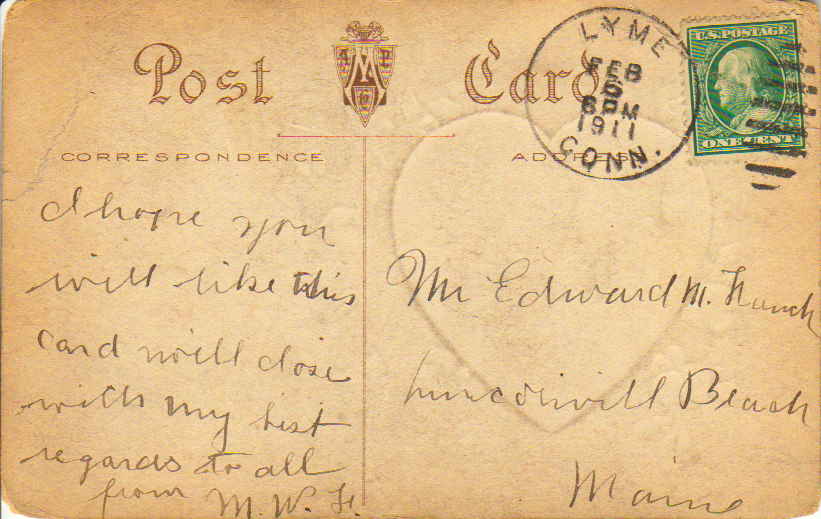 Post Card
A P
M
Co
LYME
FEB
6
6 PM
1911
CONN.
U.S. POSTAGE
ONE CENT
CORRESPONDENCE
ADDRESS
I hope you
will like this
card will close
with my best
regards to all
from M. W. H.
Mr Edward M. French
Lincolnvill Beach
Maine